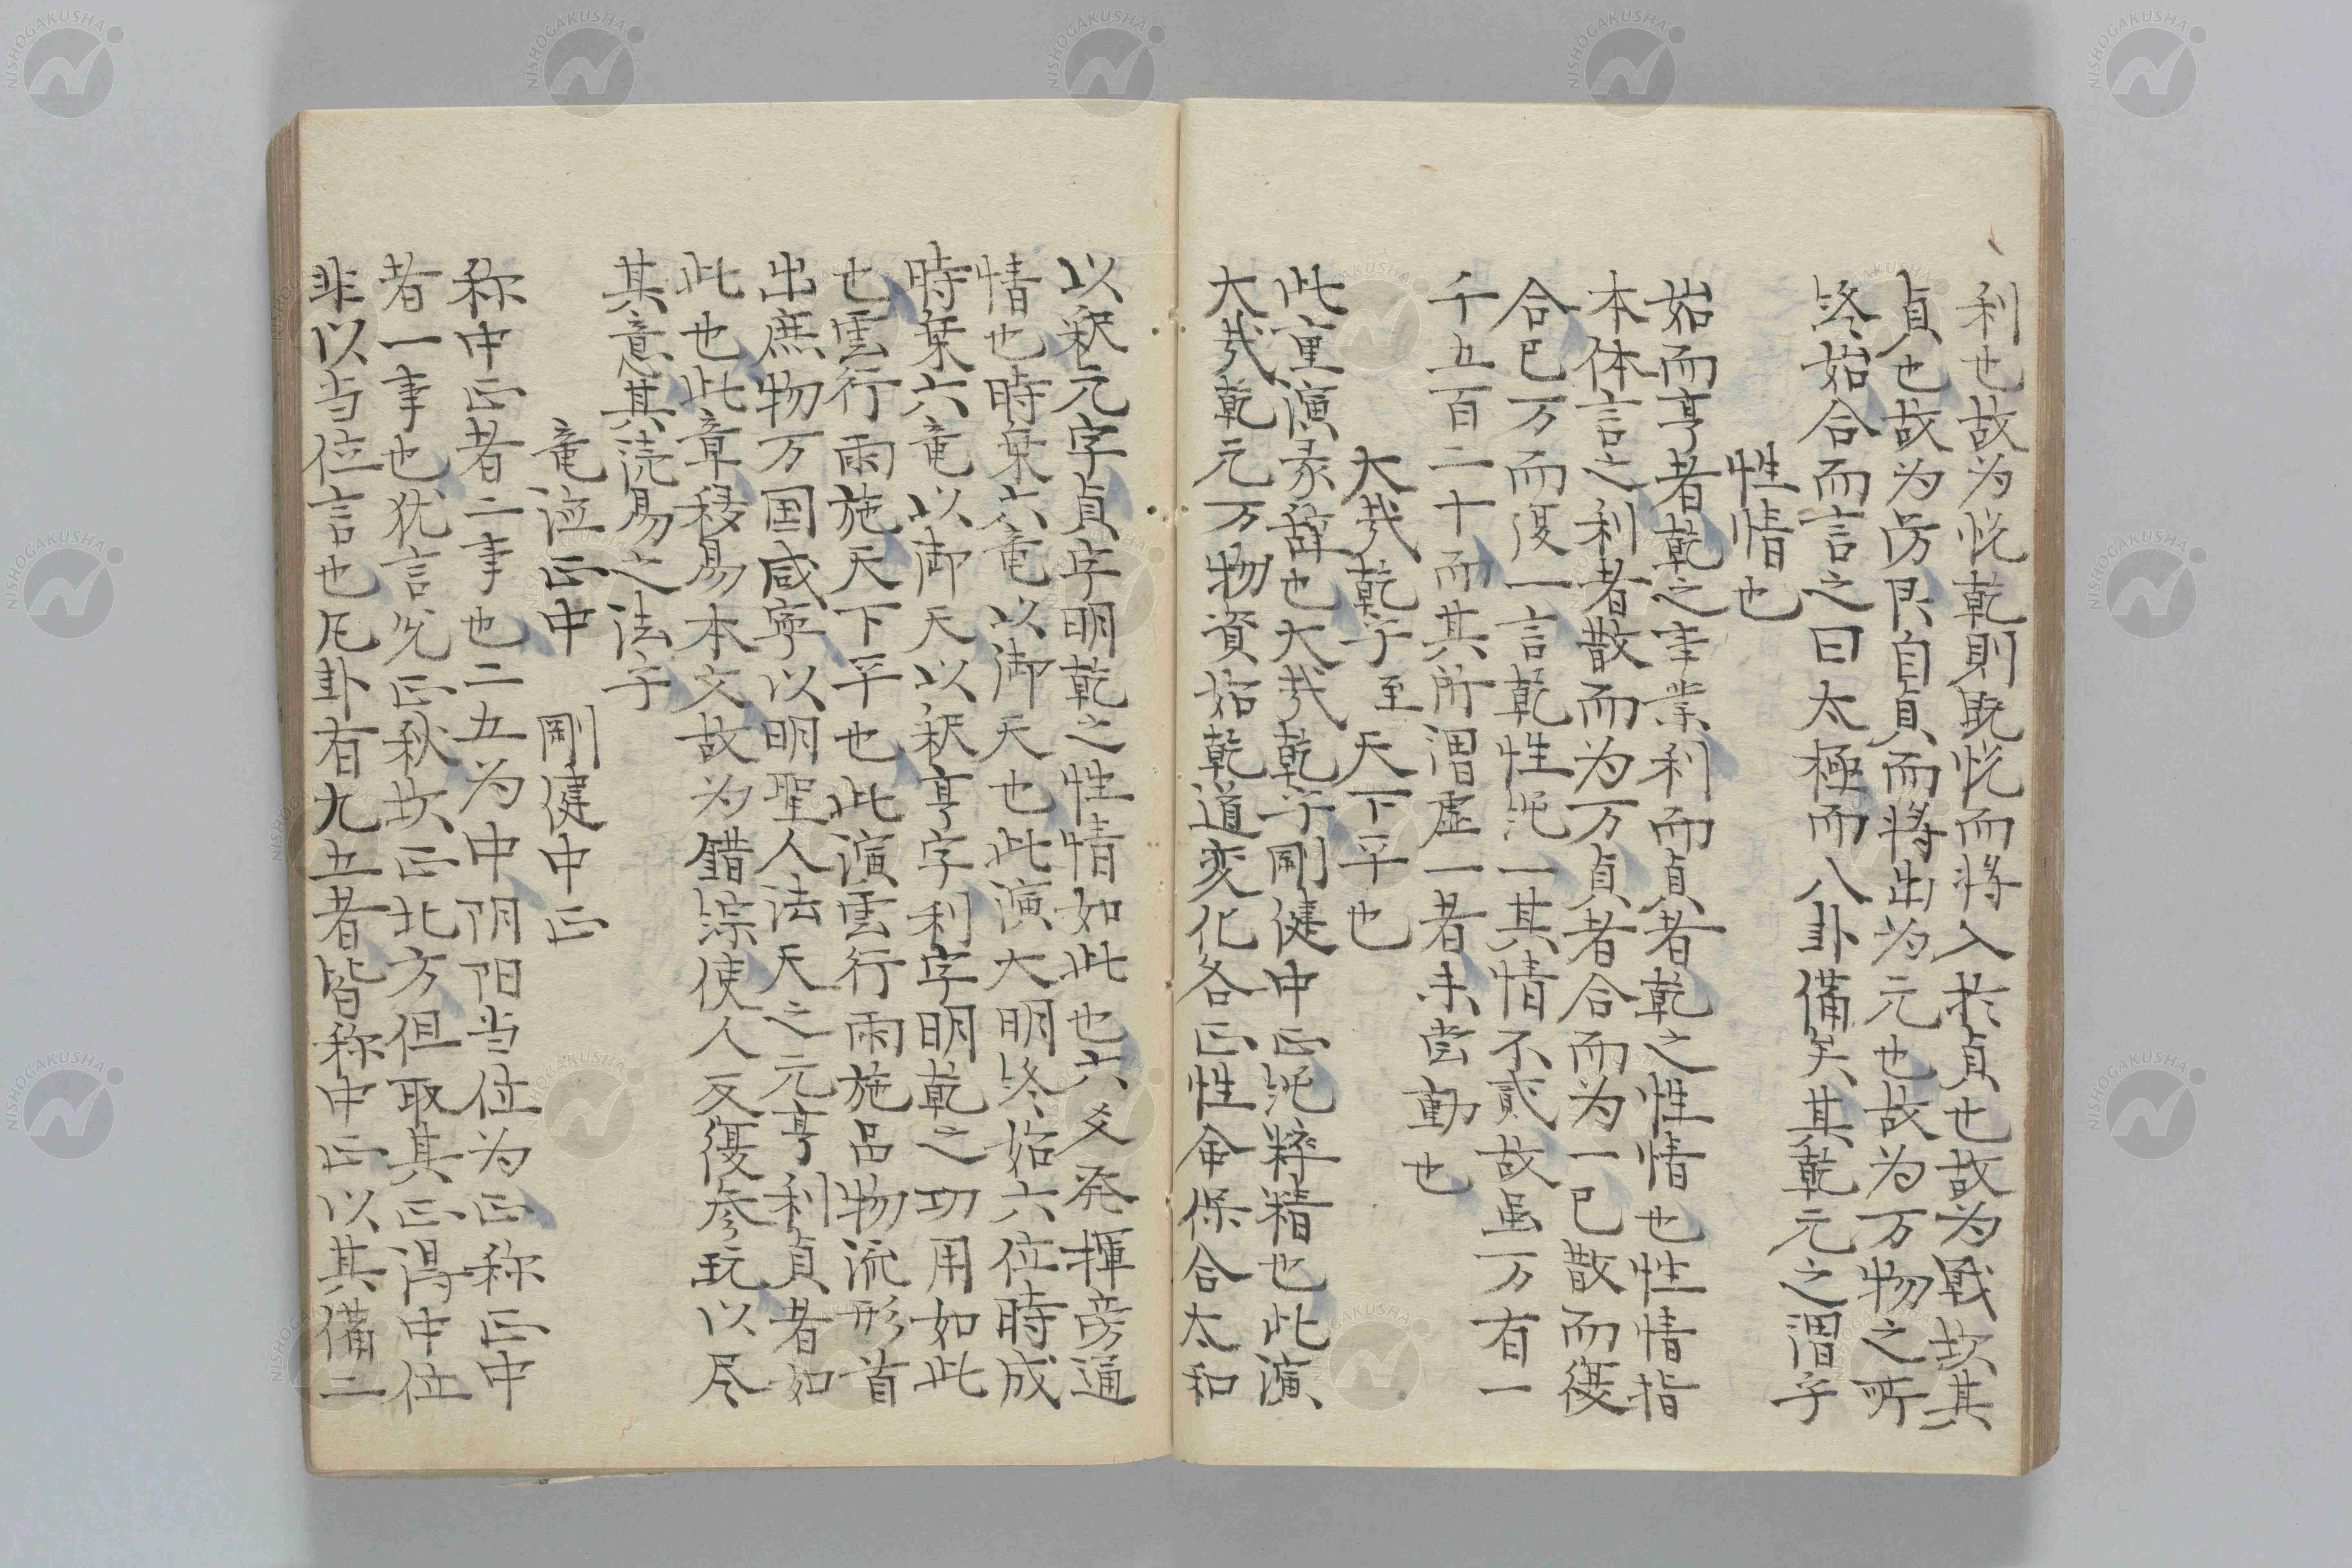 利也故为悦乾則既悦而将入於貞也故为戦坎其
貞也故为労艮自貞而将出为元也故为万物之所
终始合而言之曰太極而八卦備矣其乾元之謂乎
性情也
始而亨者乾之事業利而貞者乾之性情也性情指
本体言之利者散而为万貞者合而为一已散而復
合已万而復一言乾性純一其情不貳故虽万有一
千五百二十而其所謂虚一者未嘗動也
大哉乾乎至天下平也
此重演彖辞也大哉乾乎剛健中正純粹精也此演
大哉乾元万物資始乾道変化各正性命保合太和
以釈元字貞字明乾之性情如此也六爻発揮旁通
情也時乗六竜以御天也此演大明终始六位時成
時乗六竜以御天以釈亨字利字明乾之功用如此
也雲行雨施天下平也此演雲行雨施品物流形首
出庶物万国咸寧以明聖人法天之元亨利貞者如
此也此章移易本文故为錯綜使人反復参玩以尽
其意其読易之法乎
竜位正中 剛健中正
称中正者二事也二五为中阴阳当位为正称正中
者一事也犹言兑正秋坎正北方但取其正得中位
非以当位言也凡卦有九五者皆称中正以其備二
NISHOGAKUSHA